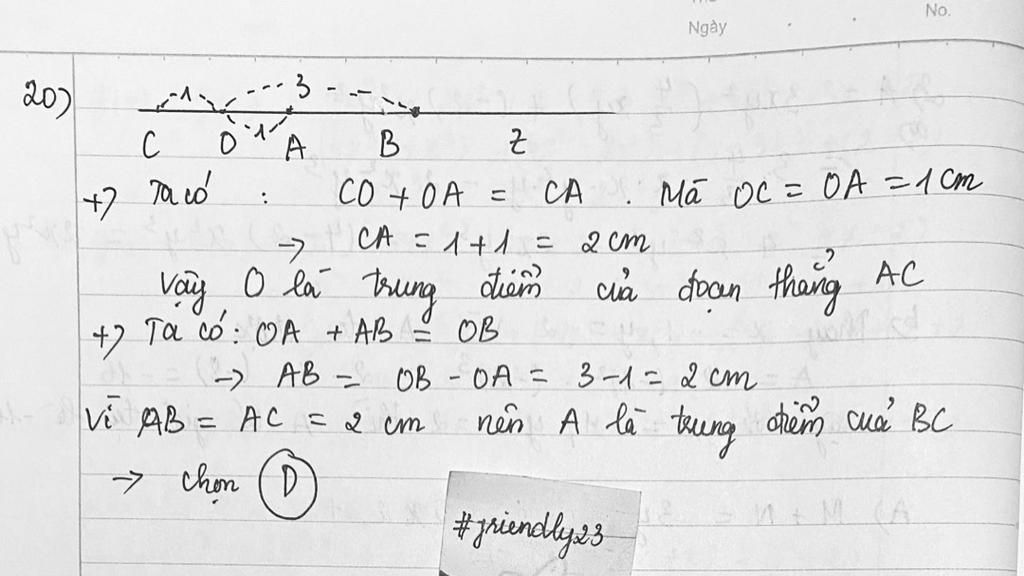 Ngày
No.
20)
1 3
1
C O A B z
+) Ta có : CO + OA = CA . Mà OC = OA = 1 cm
→ CA = 1 + 1 = 2 cm
Vậy O là trung điểm của đoạn thẳng AC
+) Ta có : OA + AB = OB
→ AB = OB - OA = 3 - 1 = 2 cm
Vì AB = AC = 2 cm nên A là trung điểm của BC
→ chọn D
#friendly23